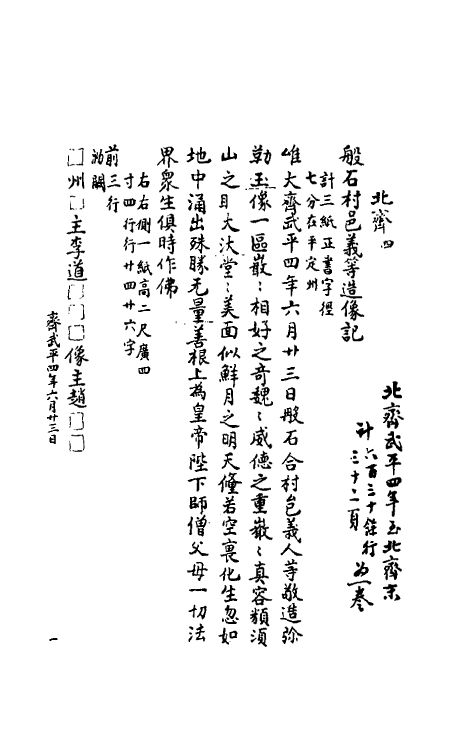 北齊四
北齊武平四年至北齊末
計六百三十餘行
三十二頁
為一卷
般石村邑義等造像記
計三紙正書字徑
七分在平定州
唯大齊武平四年六月廿三日般石合村邑義人等敬造弥
勒玉像一區巖〻相好之奇魏〻威德之重巖〻真容頖湏
山之目大汏堂〻美面似鮮月之明天僮若空裏化生忽如
地中涌出殊勝无量善根上為皇帝陛下師僧父母一切法
界衆生俱時作佛
右右側一紙高二尺廣四
寸四行行廿四廿六字
前三行
泐闕
□州□主李道□□□像主趙□□
齊武平四年六月廿三日
一